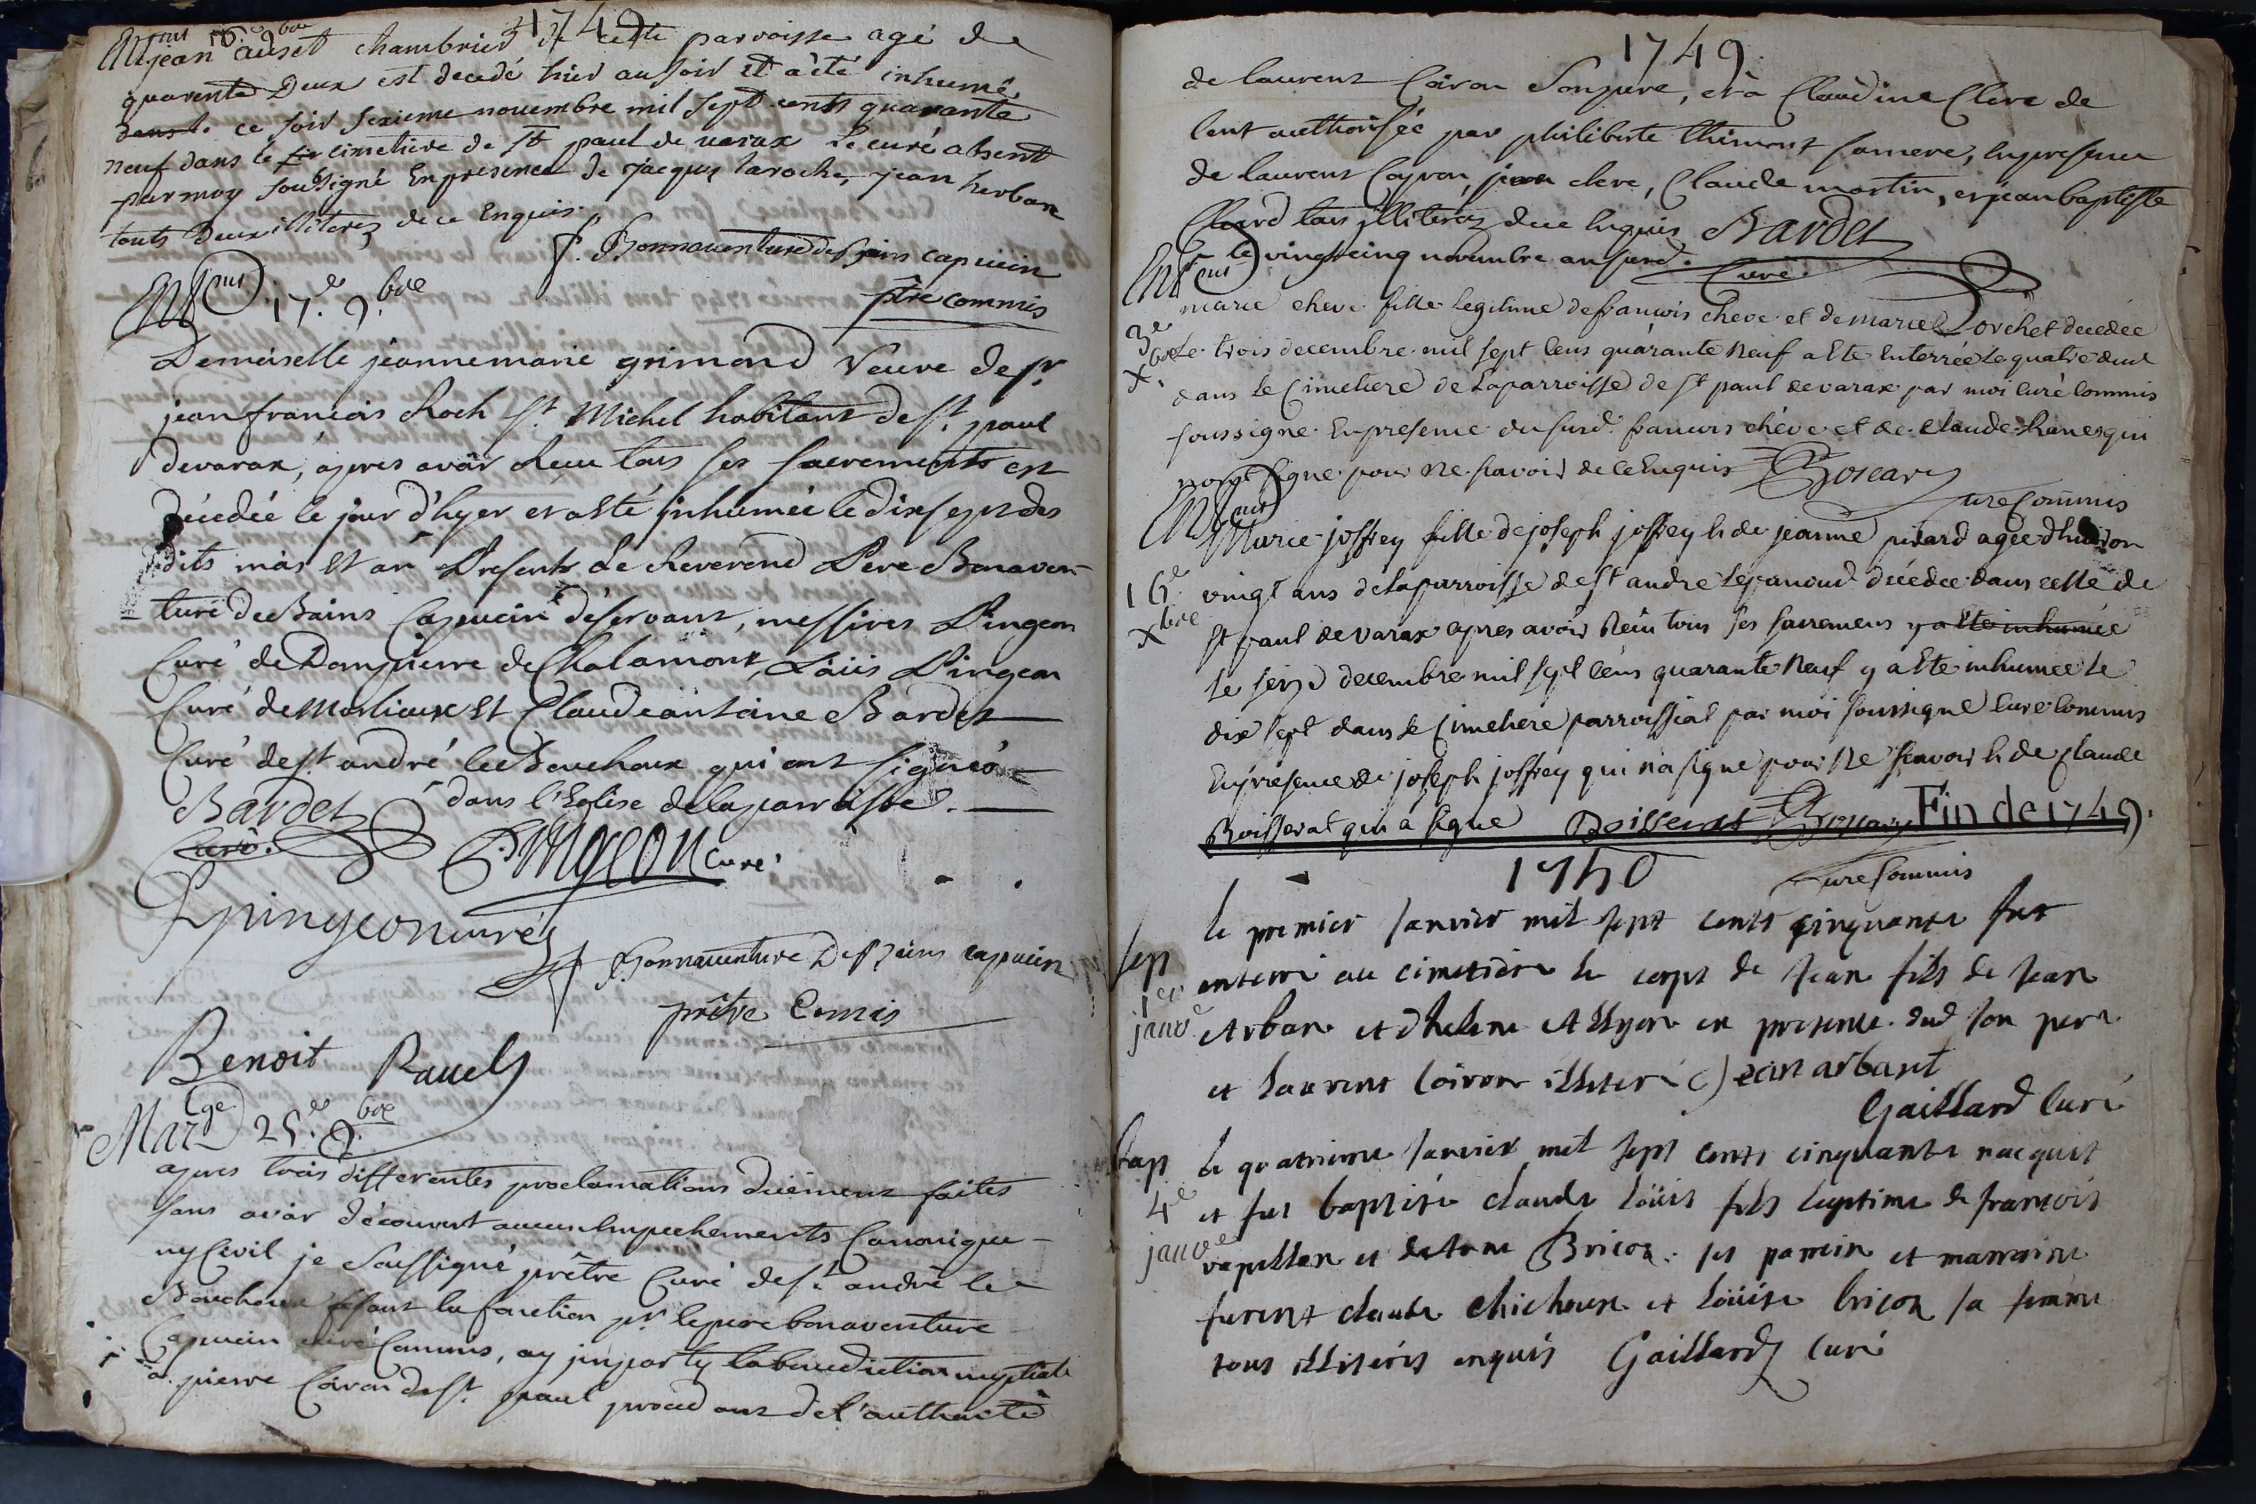 1749
Ent.ment 16.e 9.bre
jean auset chambrier de cette parroisse agé de
quarente Deux est decedé hier au soir et à été inhumé
dans le ce soir seizieme novembre mil sept cents quarante
neuf dans le cimetiere de St paul de varax le curé absent
par moy sousigné En présence de jacques laroche, jean herban
touts Deux illiterez de ce Enquis.
f. Bonnaventure des Bains capucin
ptre commis
Ent.ment 17.e 9.bre
Demoiselle jeanne marie grimond Veuve de sr
jean francois Roch St. Michel habitant de St. paul
de varax, apres avoir Receu tous ses sacrements est
décédée le jour d'hyer et a esté inhumée le dix sept des
dits mois et an Presents le Reverend Pere Bonaven-
ture de Bains Capucin déservant, messires Pingeon
Curé de Dompierre de Chalamont, Loüis Pingeon
Curé de Marlieux et Claude antoine Bardet
Curé de St. andré le Bouchoux qui ont signé
dans l'Eglise de la parroisse.
Bardet
Curé.
Pingeon Curé
L pingeon curé
f. Bonnaventure Des Bains capucin
prêtre Comis
Benoit Ravel
Mar.ge 25.e 9.bre
apres trois differentes proclamations duement faites
sans avoir découvert aucun Empechements Canonique
ny Civil je Soussigné prêtre Curé de St. andré le
Bouchoux fesant la fonction pr. le pere bonaventure
Capucin curé Commis, ay imparty la benediction nuptiale
à pierre Coiron de St. paul procedant de l'authorité
1749.
de laurent Coiron Son pere, et à Claudine Clere de
lent authorisée par philiberte thimont sa mere, En presence
de laurent Coyron, jean clere, Claude martin, et jean baptiste
Clord tous illiterez de ce Enquis Bardet
le vingt cinq novembre an susd. Curé.
Ent.ment
3e
Xbre
marie cheve fille legitime de francois cheve et de marie Lorchet decedée
Le trois decembre mil sept Cens quarante Neuf a Eté Enterrée Le quatre dud
dans le Cimetiere de La parroisse de St paul de varax par moi Curé Commis
soussigne En presence du susd. francois chève et de Claude qui
n'ont signe pour Ne scavoir de ce Enquis Boscary
Cure Commis
Ent.ment
16e
Xbre
Marie joffrey fille de joseph joffrey & de jeanne pirard agee d'Environ
vingt ans de la parroisse de St andre Le panoud décédée dans celle de
St paul de varax apres avoir Recu tous ses sacremens y a Eté inhumée
le seize decembre mil sept Cens quarante Neuf y a Eté inhumée Le
dix sept dans le Cimetiere parroissial par moi soussigne Cure Commis
En présence de joseph joffrey qui n'a signe pour Ne scavoir & de Claude
Boisserat qui a signe Boisserat Boscary Fin de 1749.
Cure Commis
1750
Sep
1er
janv.e
le premier Janvier mil sept cents cinquante fut
enterré au cimetière le corps de Jean fils de Jean
Arban et d'helene Allyon en presence dud son pere
et Laurent Coiron illiteré Jean arbant
Gaillard Curé
Bap
4e
janv.e
le quatrieme Janvier mil sept cents cinquante nacquit
et fut baptisé claude Loüis fils legitime de francois
rapillon et de Anne Bricon. ses parrein et marreine
furent claude Chichoux et Loüise bricon sa femme
tous illiterés enquis Gaillard Curé